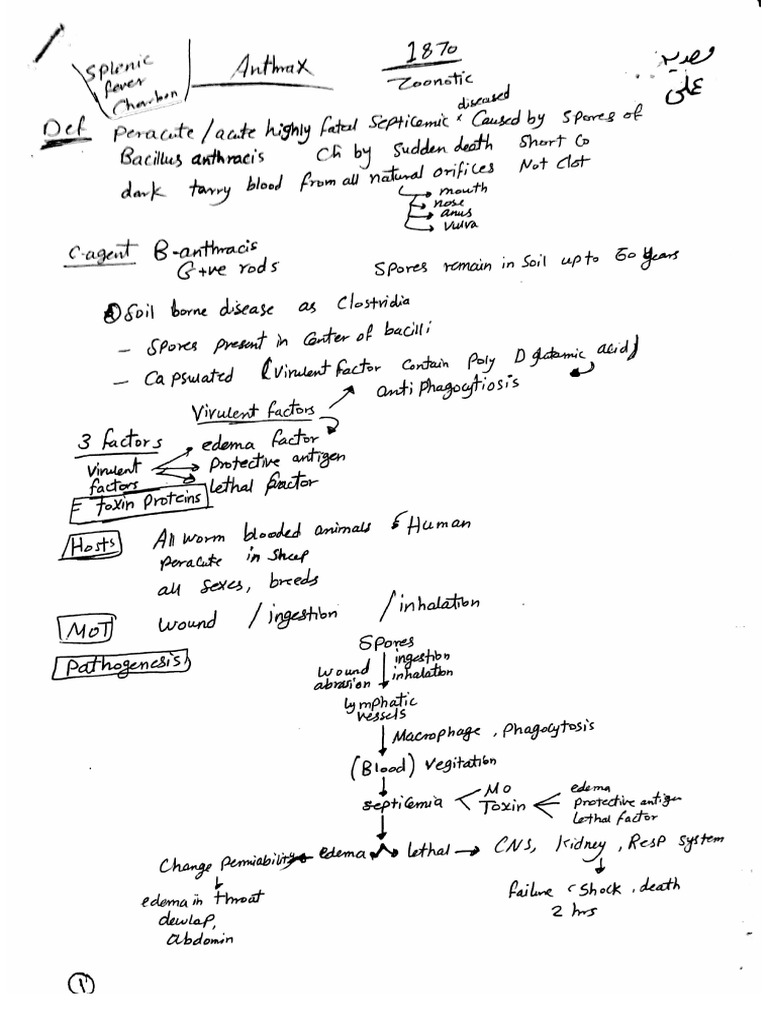 Splenic fever Charbon
Anthrax
1870
Zoonotic
على
Def Peracute / acute highly fatal septicemic diseased Caused by spores of
Bacillus anthracis Ch by Sudden death Short Co
dark tarry blood from all natural orifices Not Clot
mouth
nose
anus
vulva
C-agent B-anthracis
G+ve rods Spores remain in soil up to 60 years
Soil borne disease as Clostridia
- Spores present in Center of bacilli
- Capsulated (Virulent factor contain poly D glutamic acid)
anti phagocytiosis
Virulent factors
3 factors edema factor
Virulent factors Protective antigen
Lethal factor
Toxin Proteins
Hosts All worm blooded animals & Human
Peracute in sheep
all sexes, breeds
MOT wound / ingestion / inhalation
Pathogenesis
Spores
wound abrasion ingestion inhalation
lymphatic vessels
Macrophage, Phagocytosis
(Blood) Vegitation
Septicemia MO Toxin edema
Protective antigen
Lethal factor
Change Permiability edema lethal → CNS, Kidney, Resp system
edema in throat failure (Shock, death
dewlap, 2 hrs
abdomin
1